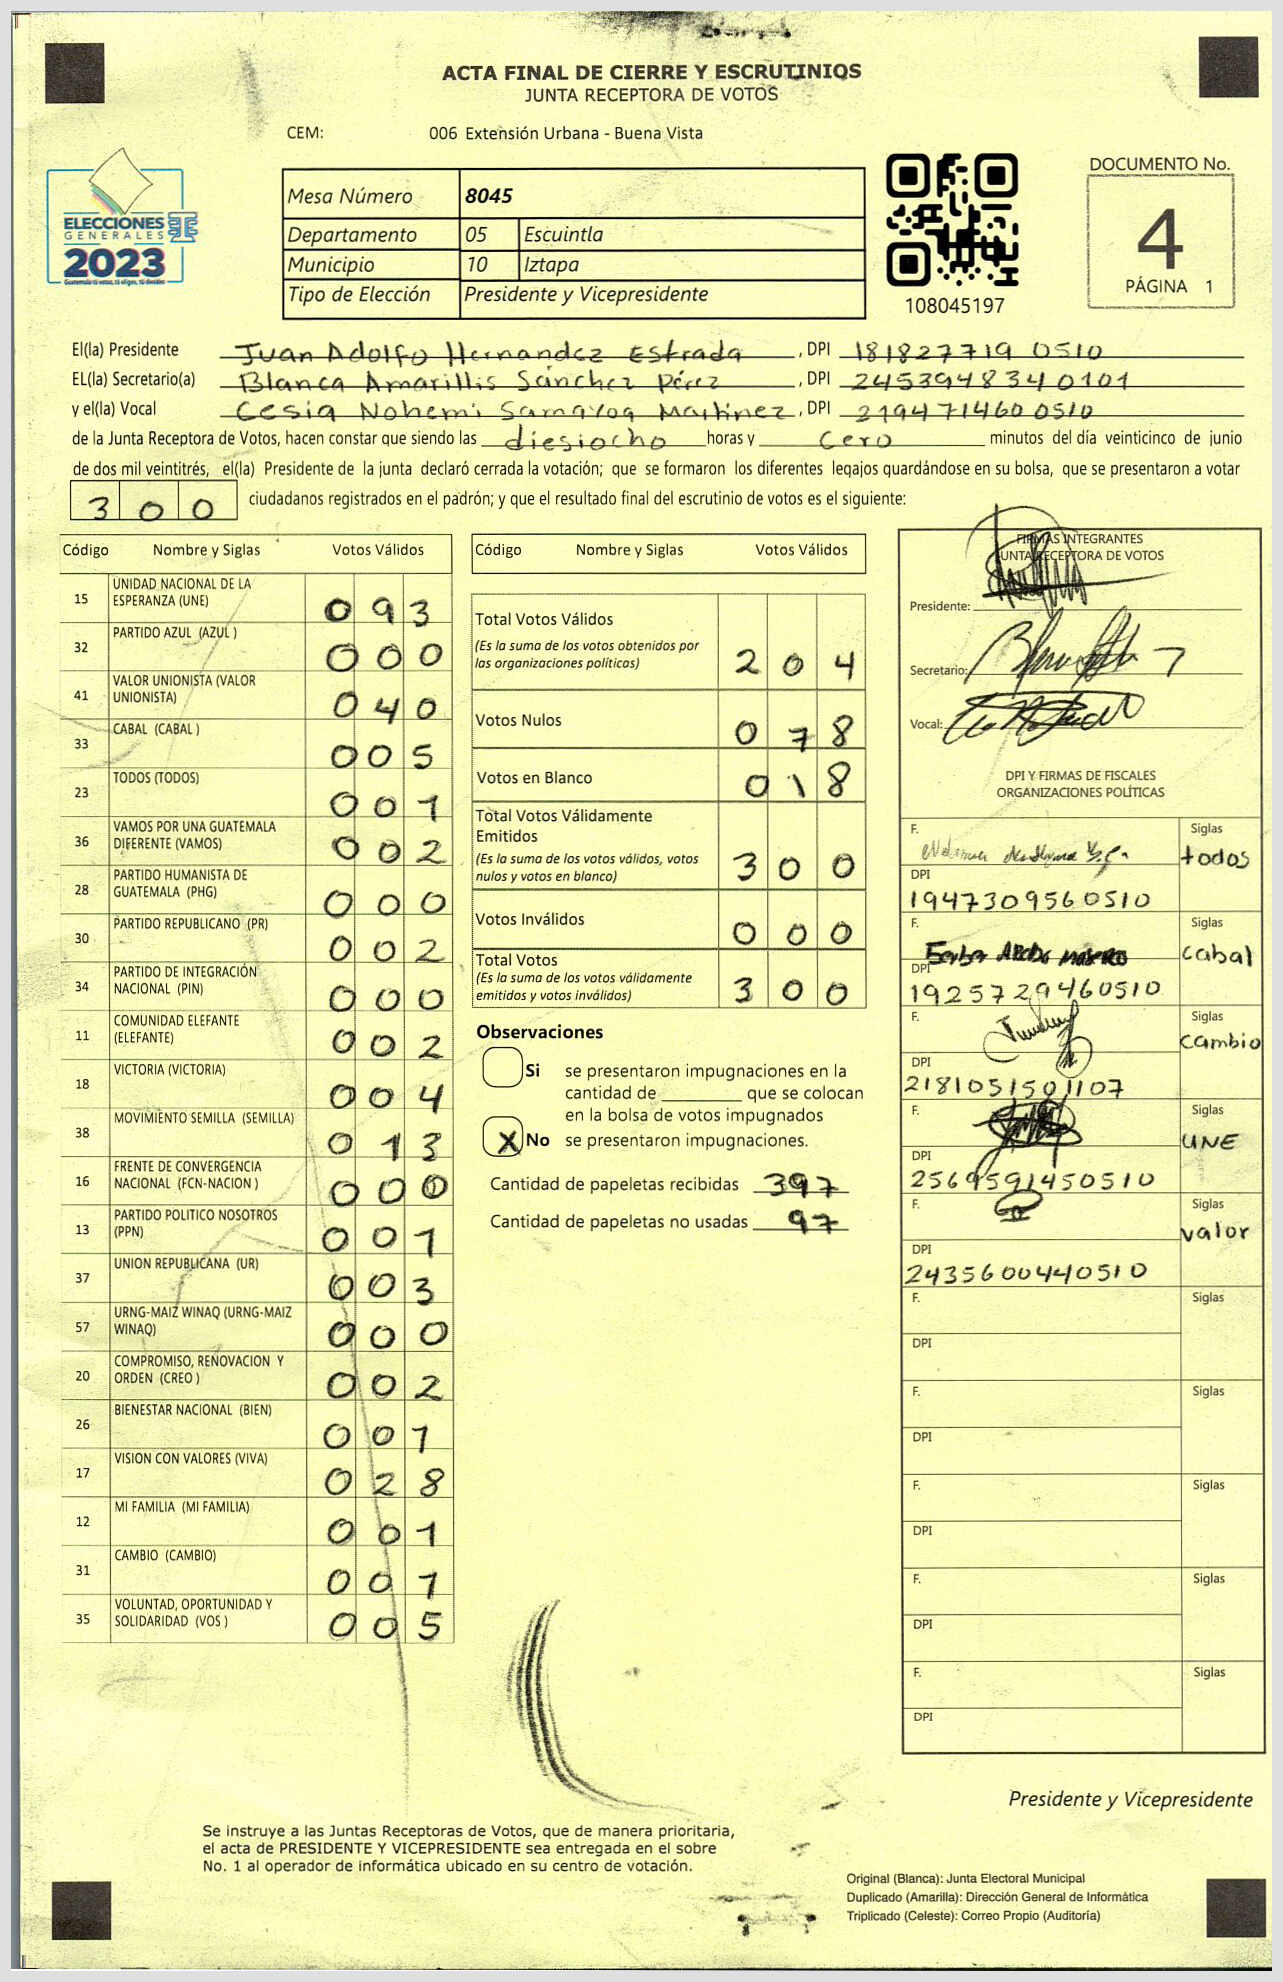 ACTA FINAL DE CIERRE Y ESCRUTINIOS
JUNTA RECEPTORA DE VOTOS
CEM: 006 Extensión Urbana - Buena Vista
ELECCIONES
GENERALES
2023
Mesa Número 8045
Departamento 05 Escuintla
Municipio 10 Iztapa
Tipo de Elección Presidente y Vicepresidente
108045197
DOCUMENTO No.
4
PÁGINA 1
El(la) Presidente Juan Adolfo Hernandez Estrada, DPI 181827719 0510
EL(la) Secretario(a) Blanca Amarillis Sánchez Pérez, DPI 2453948340101
y el(la) Vocal Cesia Nohemi Samayoa Martinez, DPI 219471460 0510
de la Junta Receptora de Votos, hacen constar que siendo las diesiocho horas y cero minutos del día veinticinco de junio
de dos mil veintitrés, el(la) Presidente de la junta declaró cerrada la votación; que se formaron los diferentes legajos quardándose en su bolsa, que se presentaron a votar
300 ciudadanos registrados en el padrón; y que el resultado final del escrutinio de votos es el siguiente:
Código Nombre y Siglas Votos Válidos
15 UNIDAD NACIONAL DE LA ESPERANZA (UNE) 093
32 PARTIDO AZUL (AZUL ) 000
41 VALOR UNIONISTA (VALOR UNIONISTA) 040
33 CABAL (CABAL ) 005
23 TODOS (TODOS) 001
36 VAMOS POR UNA GUATEMALA DIFERENTE (VAMOS) 002
28 PARTIDO HUMANISTA DE GUATEMALA (PHG) 000
30 PARTIDO REPUBLICANO (PR) 002
34 PARTIDO DE INTEGRACIÓN NACIONAL (PIN) 000
11 COMUNIDAD ELEFANTE (ELEFANTE) 002
18 VICTORIA (VICTORIA) 004
38 MOVIMIENTO SEMILLA (SEMILLA) 013
16 FRENTE DE CONVERGENCIA NACIONAL (FCN-NACION ) 000
13 PARTIDO POLITICO NOSOTROS (PPN) 001
37 UNION REPUBLICANA (UR) 003
57 URNG-MAIZ WINAQ (URNG-MAIZ WINAQ) 000
20 COMPROMISO, RENOVACION Y ORDEN (CREO ) 002
26 BIENESTAR NACIONAL (BIEN) 001
17 VISION CON VALORES (VIVA) 028
12 MI FAMILIA (MI FAMILIA) 001
31 CAMBIO (CAMBIO) 001
35 VOLUNTAD, OPORTUNIDAD Y SOLIDARIDAD (VOS ) 005
Código Nombre y Siglas Votos Válidos
Total Votos Válidos 204
(Es la suma de los votos obtenidos por
las organizaciones políticas)
Votos Nulos 078
Votos en Blanco 018
Total Votos Válidamente
Emitidos
(Es la suma de los votos válidos, votos
nulos y votos en blanco) 300
Votos Inválidos 000
Total Votos
(Es la suma de los votos válidamente
emitidos y votos inválidos) 300
Observaciones
Si se presentaron impugnaciones en la
cantidad de ________ que se colocan
en la bolsa de votos impugnados
X No se presentaron impugnaciones.
Cantidad de papeletas recibidas 397
Cantidad de papeletas no usadas 97
FIRMAS INTEGRANTES
JUNTA RECEPTORA DE VOTOS
Presidente:
Secretario:
Vocal:
DPI Y FIRMAS DE FISCALES
ORGANIZACIONES POLÍTICAS
F. Siglas
todos
DPI
1947309560510
F. Siglas
cabal
DPI
1925729460510
F. Siglas
cambio
DPI
2181051501107
F. Siglas
UNE
DPI
2569591450510
F. Siglas
valor
DPI
2435600440510
F. Siglas
DPI
F. Siglas
DPI
F. Siglas
DPI
F. Siglas
DPI
F. Siglas
DPI
Presidente y Vicepresidente
Se instruye a las Juntas Receptoras de Votos, que de manera prioritaria,
el acta de PRESIDENTE Y VICEPRESIDENTE sea entregada en el sobre
No. 1 al operador de informática ubicado en su centro de votación.
Original (Blanca): Junta Electoral Municipal
Duplicado (Amarilla): Dirección General de Informática
Triplicado (Celeste): Correo Propio (Auditoría)